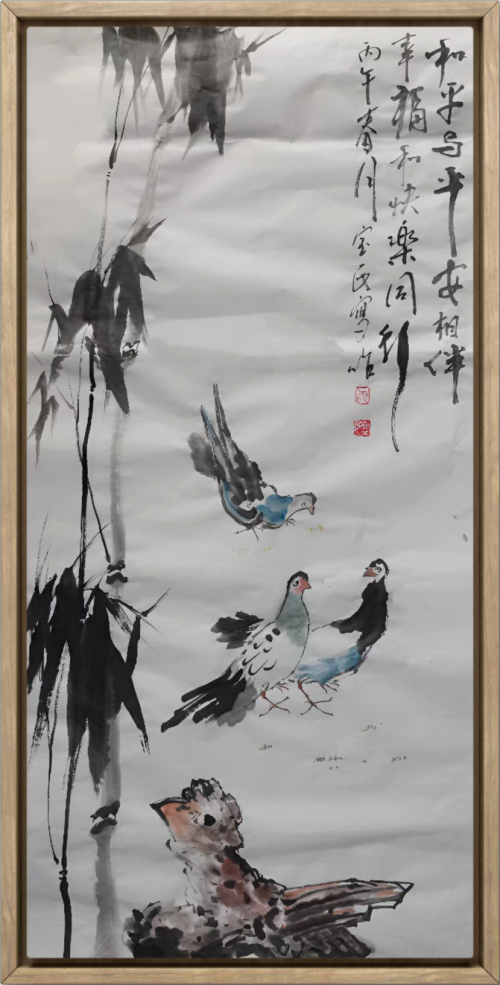 和平与平安相伴
幸福和快樂同行
丙午春月宝民写作